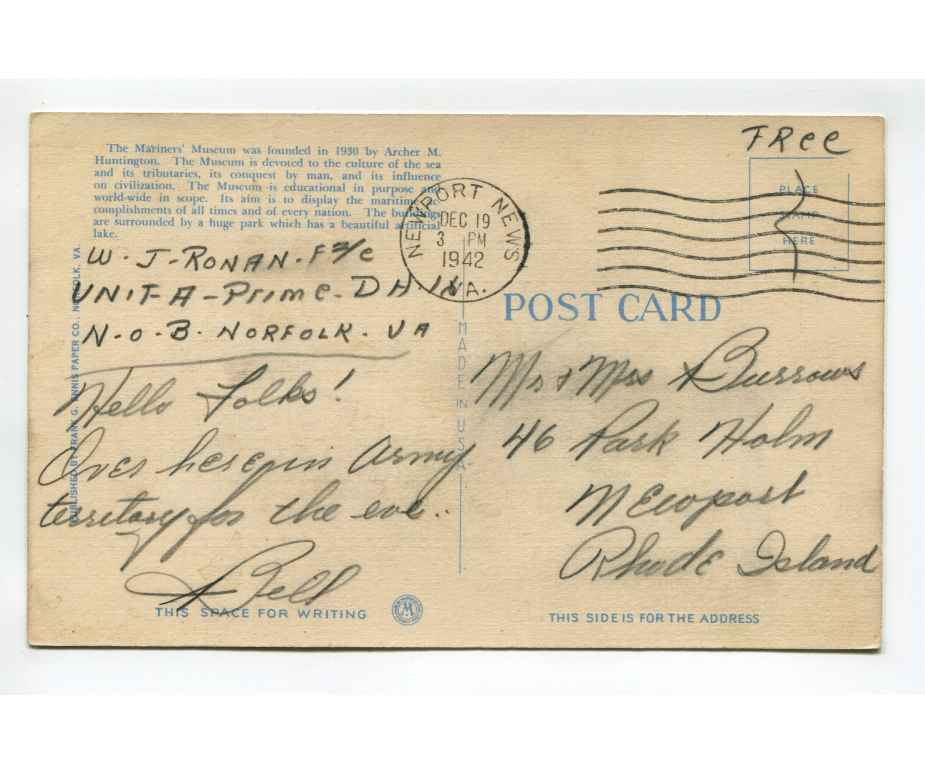 The Mariners' Museum was founded in 1930 by Archer M.
Huntington. The Museum is devoted to the culture of the sea
and its tributaries, its conquest by man, and its influence
on civilization. The Museum is educational in purpose and
world-wide in scope. Its aim is to display the maritime ac-
complishments of all times and of every nation. The buildings
are surrounded by a huge park which has a beautiful artificial
lake.
W. J-RONAN-F2/c
UNIT-A-Prime-DH
N-O-B-NORFOLK-VA
Hello Folks!
Over here in army
territory for the eve..
Bell
THIS SPACE FOR WRITING
PUBLISHED BY FRANK G. ENNIS PAPER CO., NORFOLK, VA.
MADE IN U.S.A.
NEWPORT NEWS
DEC 19
3 PM
1942
VA.
FRee
PLACE
STAMP
HERE
POST CARD
Mr & Mrs Burrows
46 Park Holm
Newport
Rhode Island
THIS SIDE IS FOR THE ADDRESS